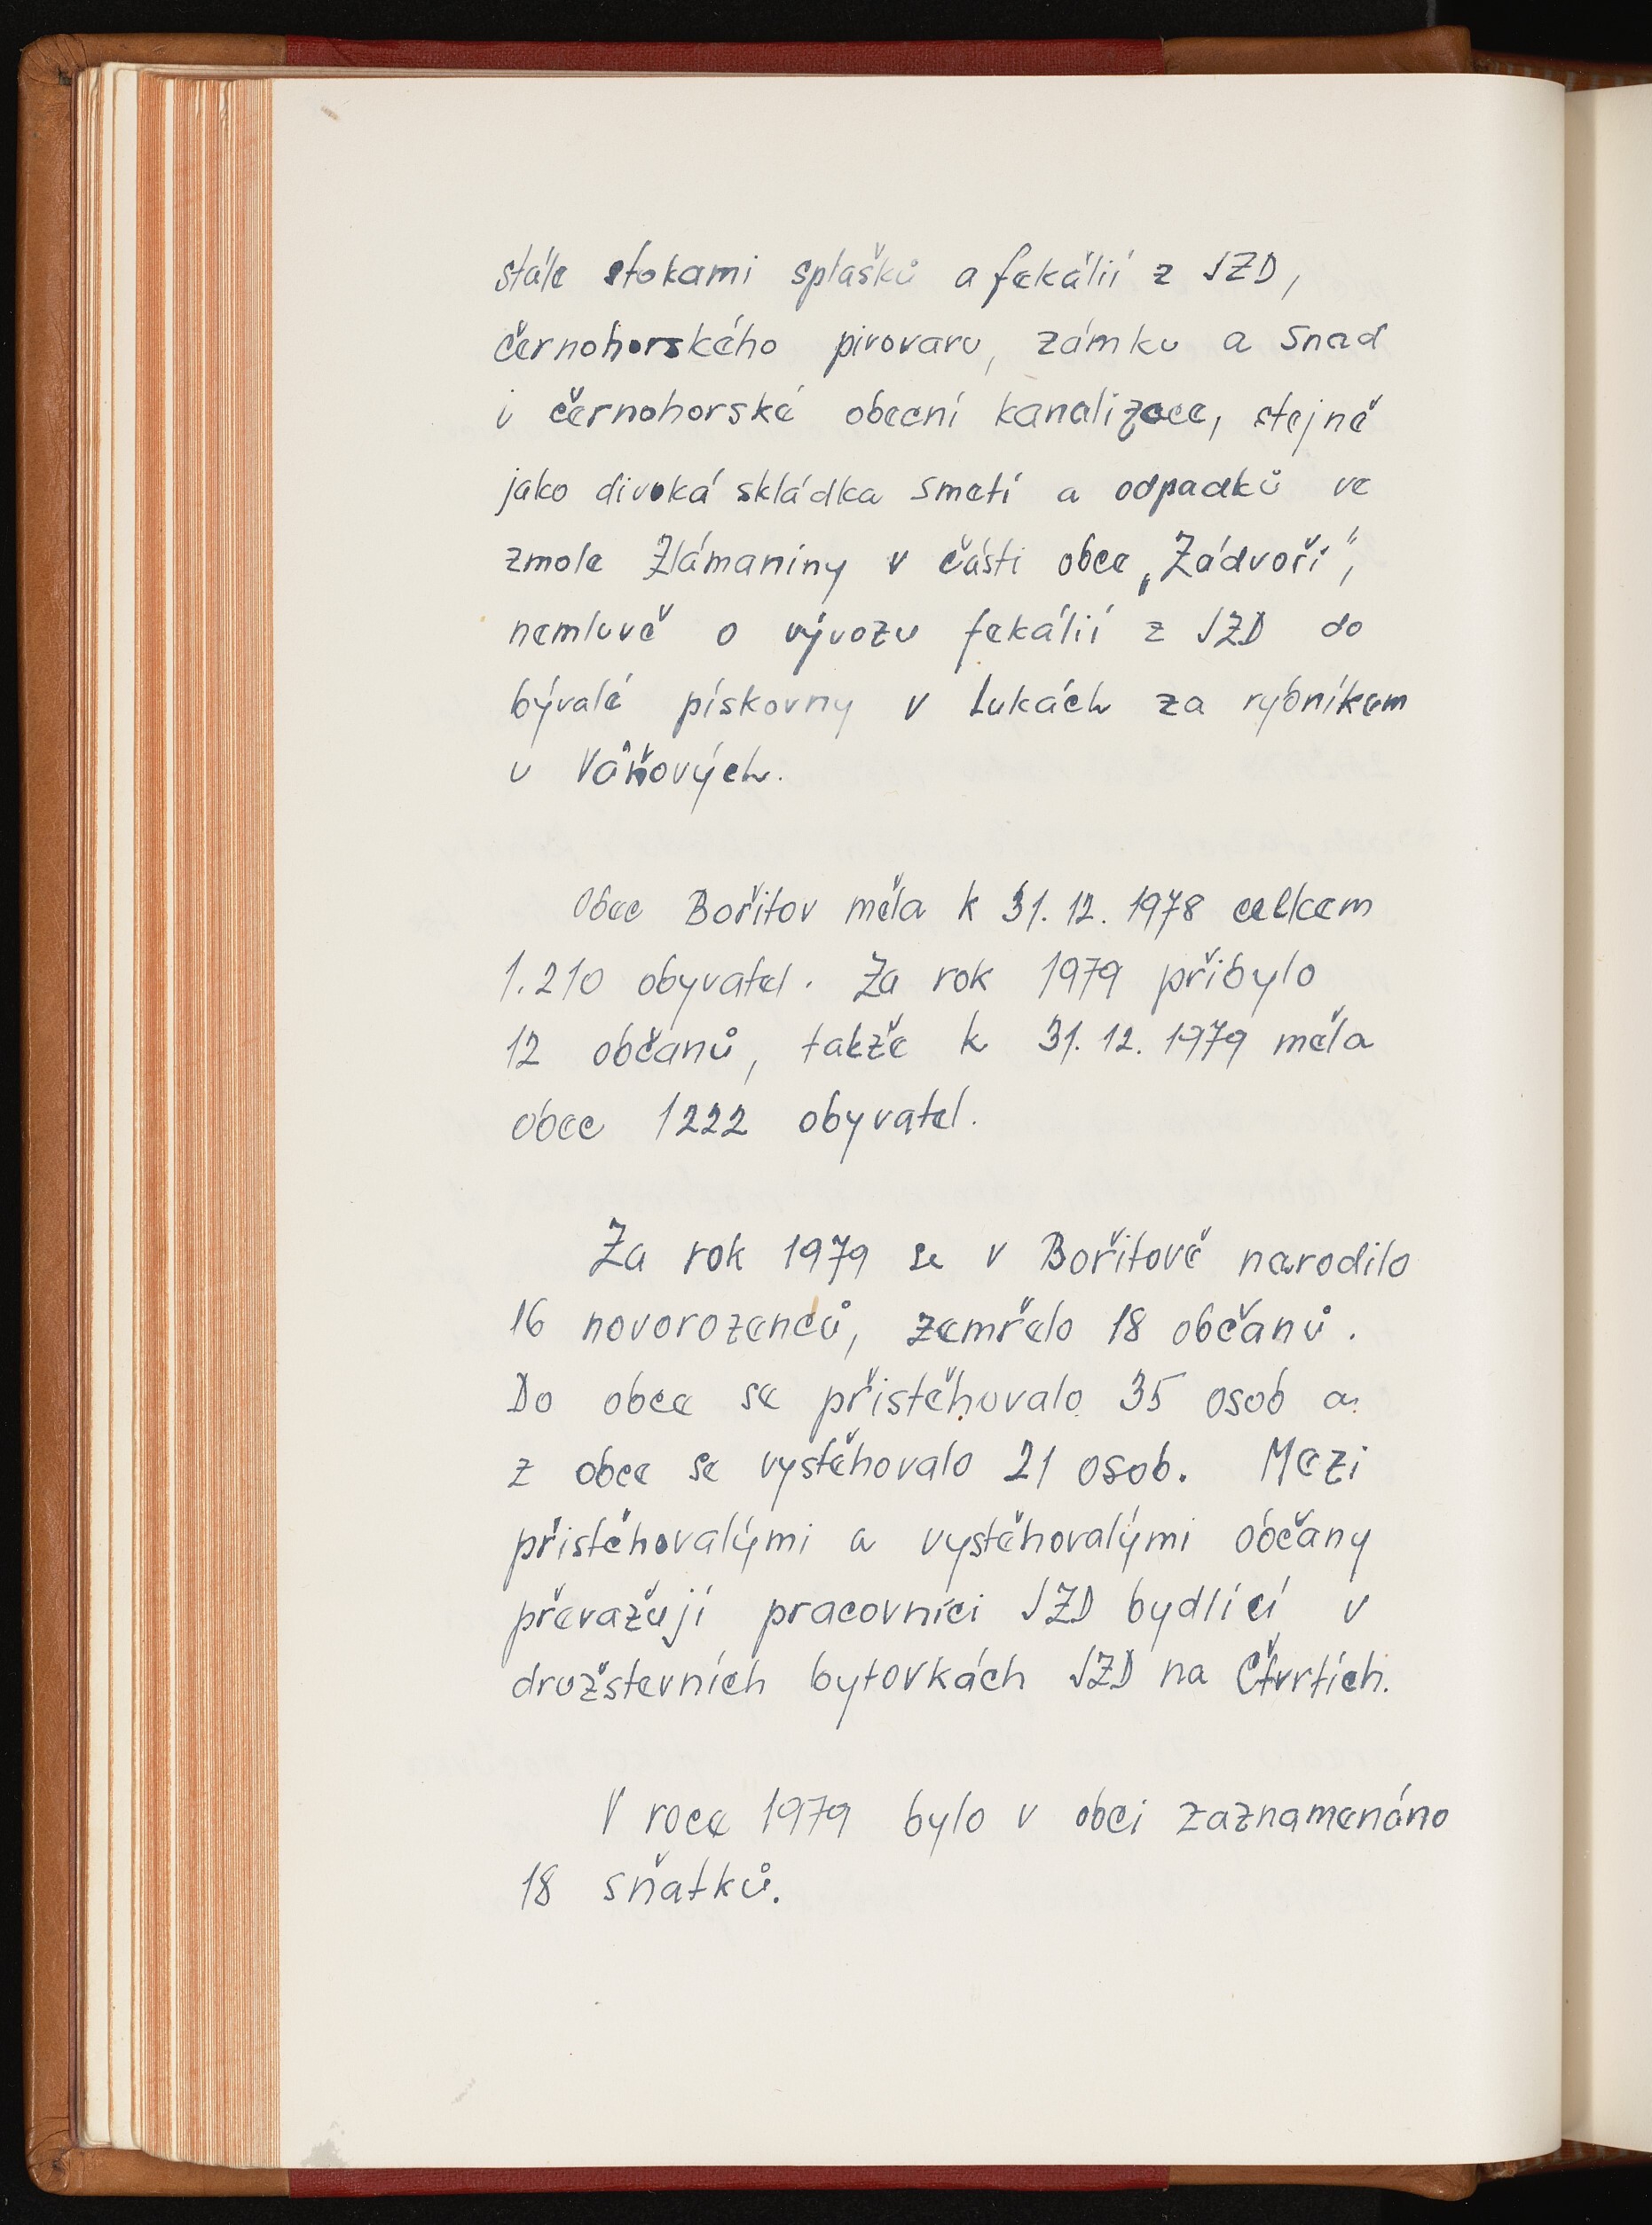 stále stokami splašků a fekálií z JZD,
černohorského pivovaru, zámku a snad
i černohorské obecní kanalizace, stejně
jako divoká skládka smetí a odpadků ve
zmole Zlámaniny v části obce „Zádvoří",
nemluvě o vývozu fekálií z JZD do
bývalé pískovny v Lukách za rybníkem
u Váňových.
Obec Bořitov měla k 31. 12. 1978 celkem
1.210 obyvatel. Za rok 1979 přibylo
12 občanů, takže k 31. 12. 1979 měla
obec 1222 obyvatel.
Za rok 1979 se v Bořitově narodilo
16 novorozenců, zemřelo 18 občanů.
Do obce se přistěhovalo 35 osob a
z obce se vystěhovalo 21 osob. Mezi
přistěhovalými a vystěhovalými občany
převažují pracovníci JZD bydlící v
družstevních bytovkách JZD na Čtvrtích.
V roce 1979 bylo v obci zaznamenáno
18 sňatků.